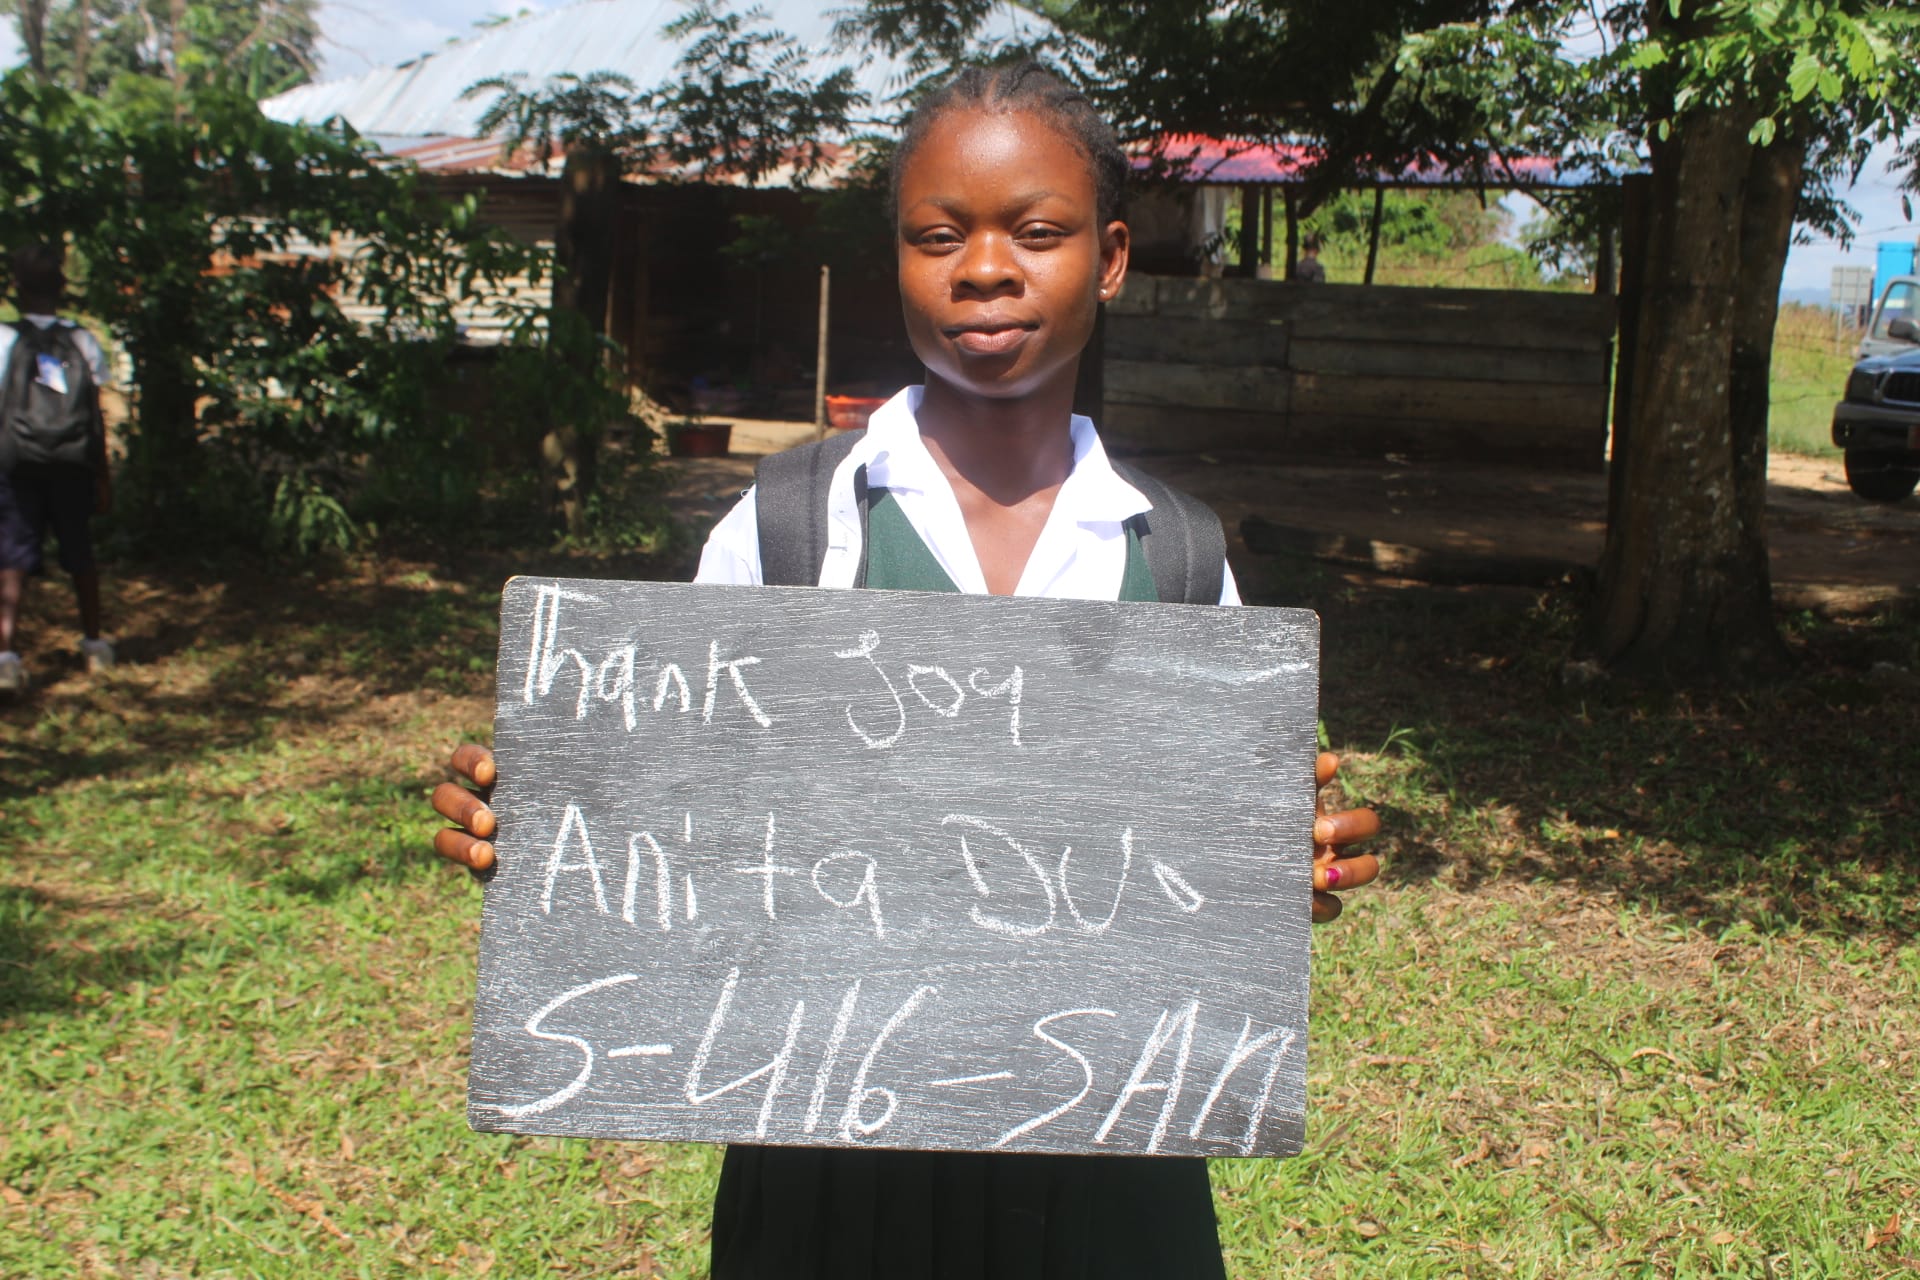 Thank Joy
Anita DU.
S-416-SAM